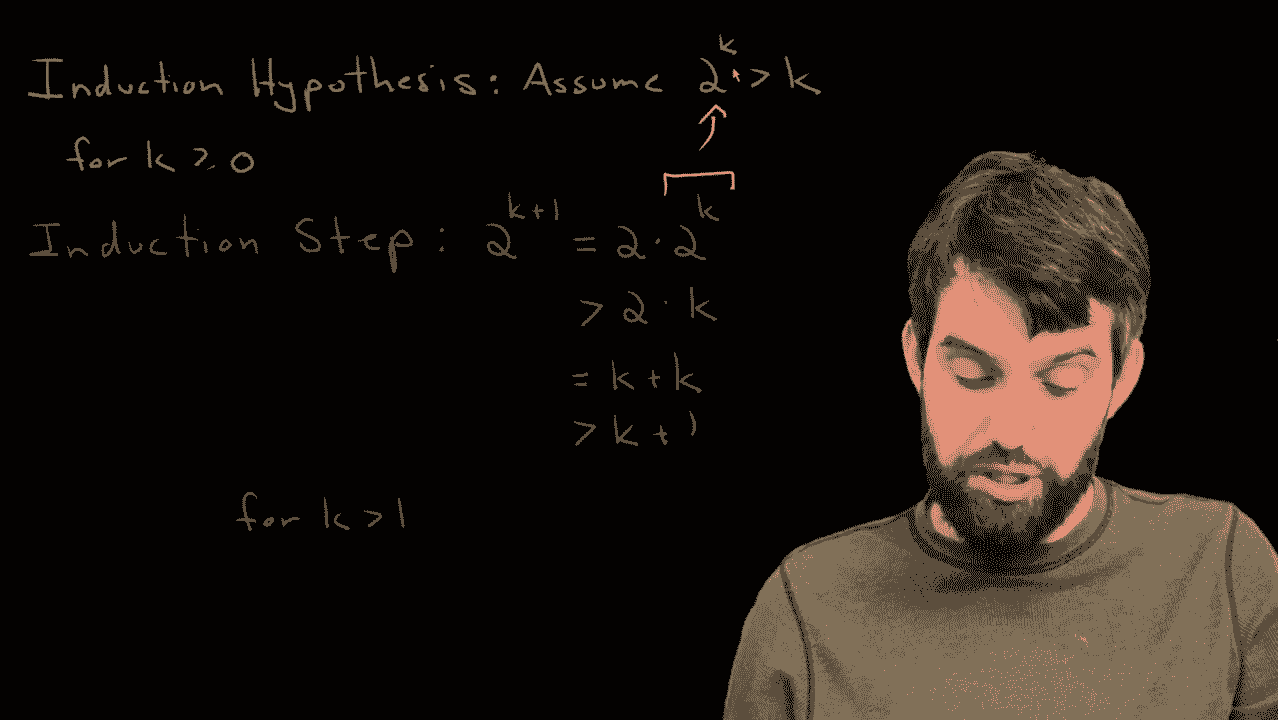 Induction Hypothesis: Assume 2^k > k
for k ≥ 0
Induction Step: 2^{k+1} = 2 · 2^k
> 2 · k
= k + k
> k + 1
for k > 1